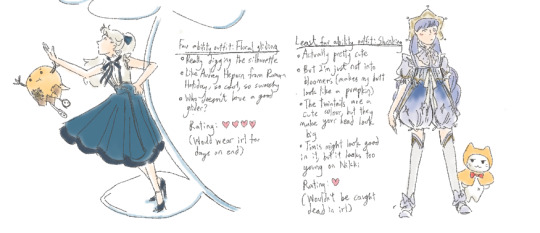 Fav ability outfit: Floral gliding
• Really digging the silhouette
• Like Audrey Hepburn from Roman
Holiday, so cool, so swooshy
• Why doesn't have a good
glider?
Rating: ♥♥♥♥
(Would wear irl for
days on end)
Least fav ability outfit: Shrinking
• Actually pretty cute
• But I'm just not into
bloomers (makes my butt
look like a pumpkin)
• The twintails are a
cute colour, but they
make your head look
big
• Timis might look good
in it, but it looks too
young on Nikki
Rating: ♥
(Wouldn't be caught
dead in irl)